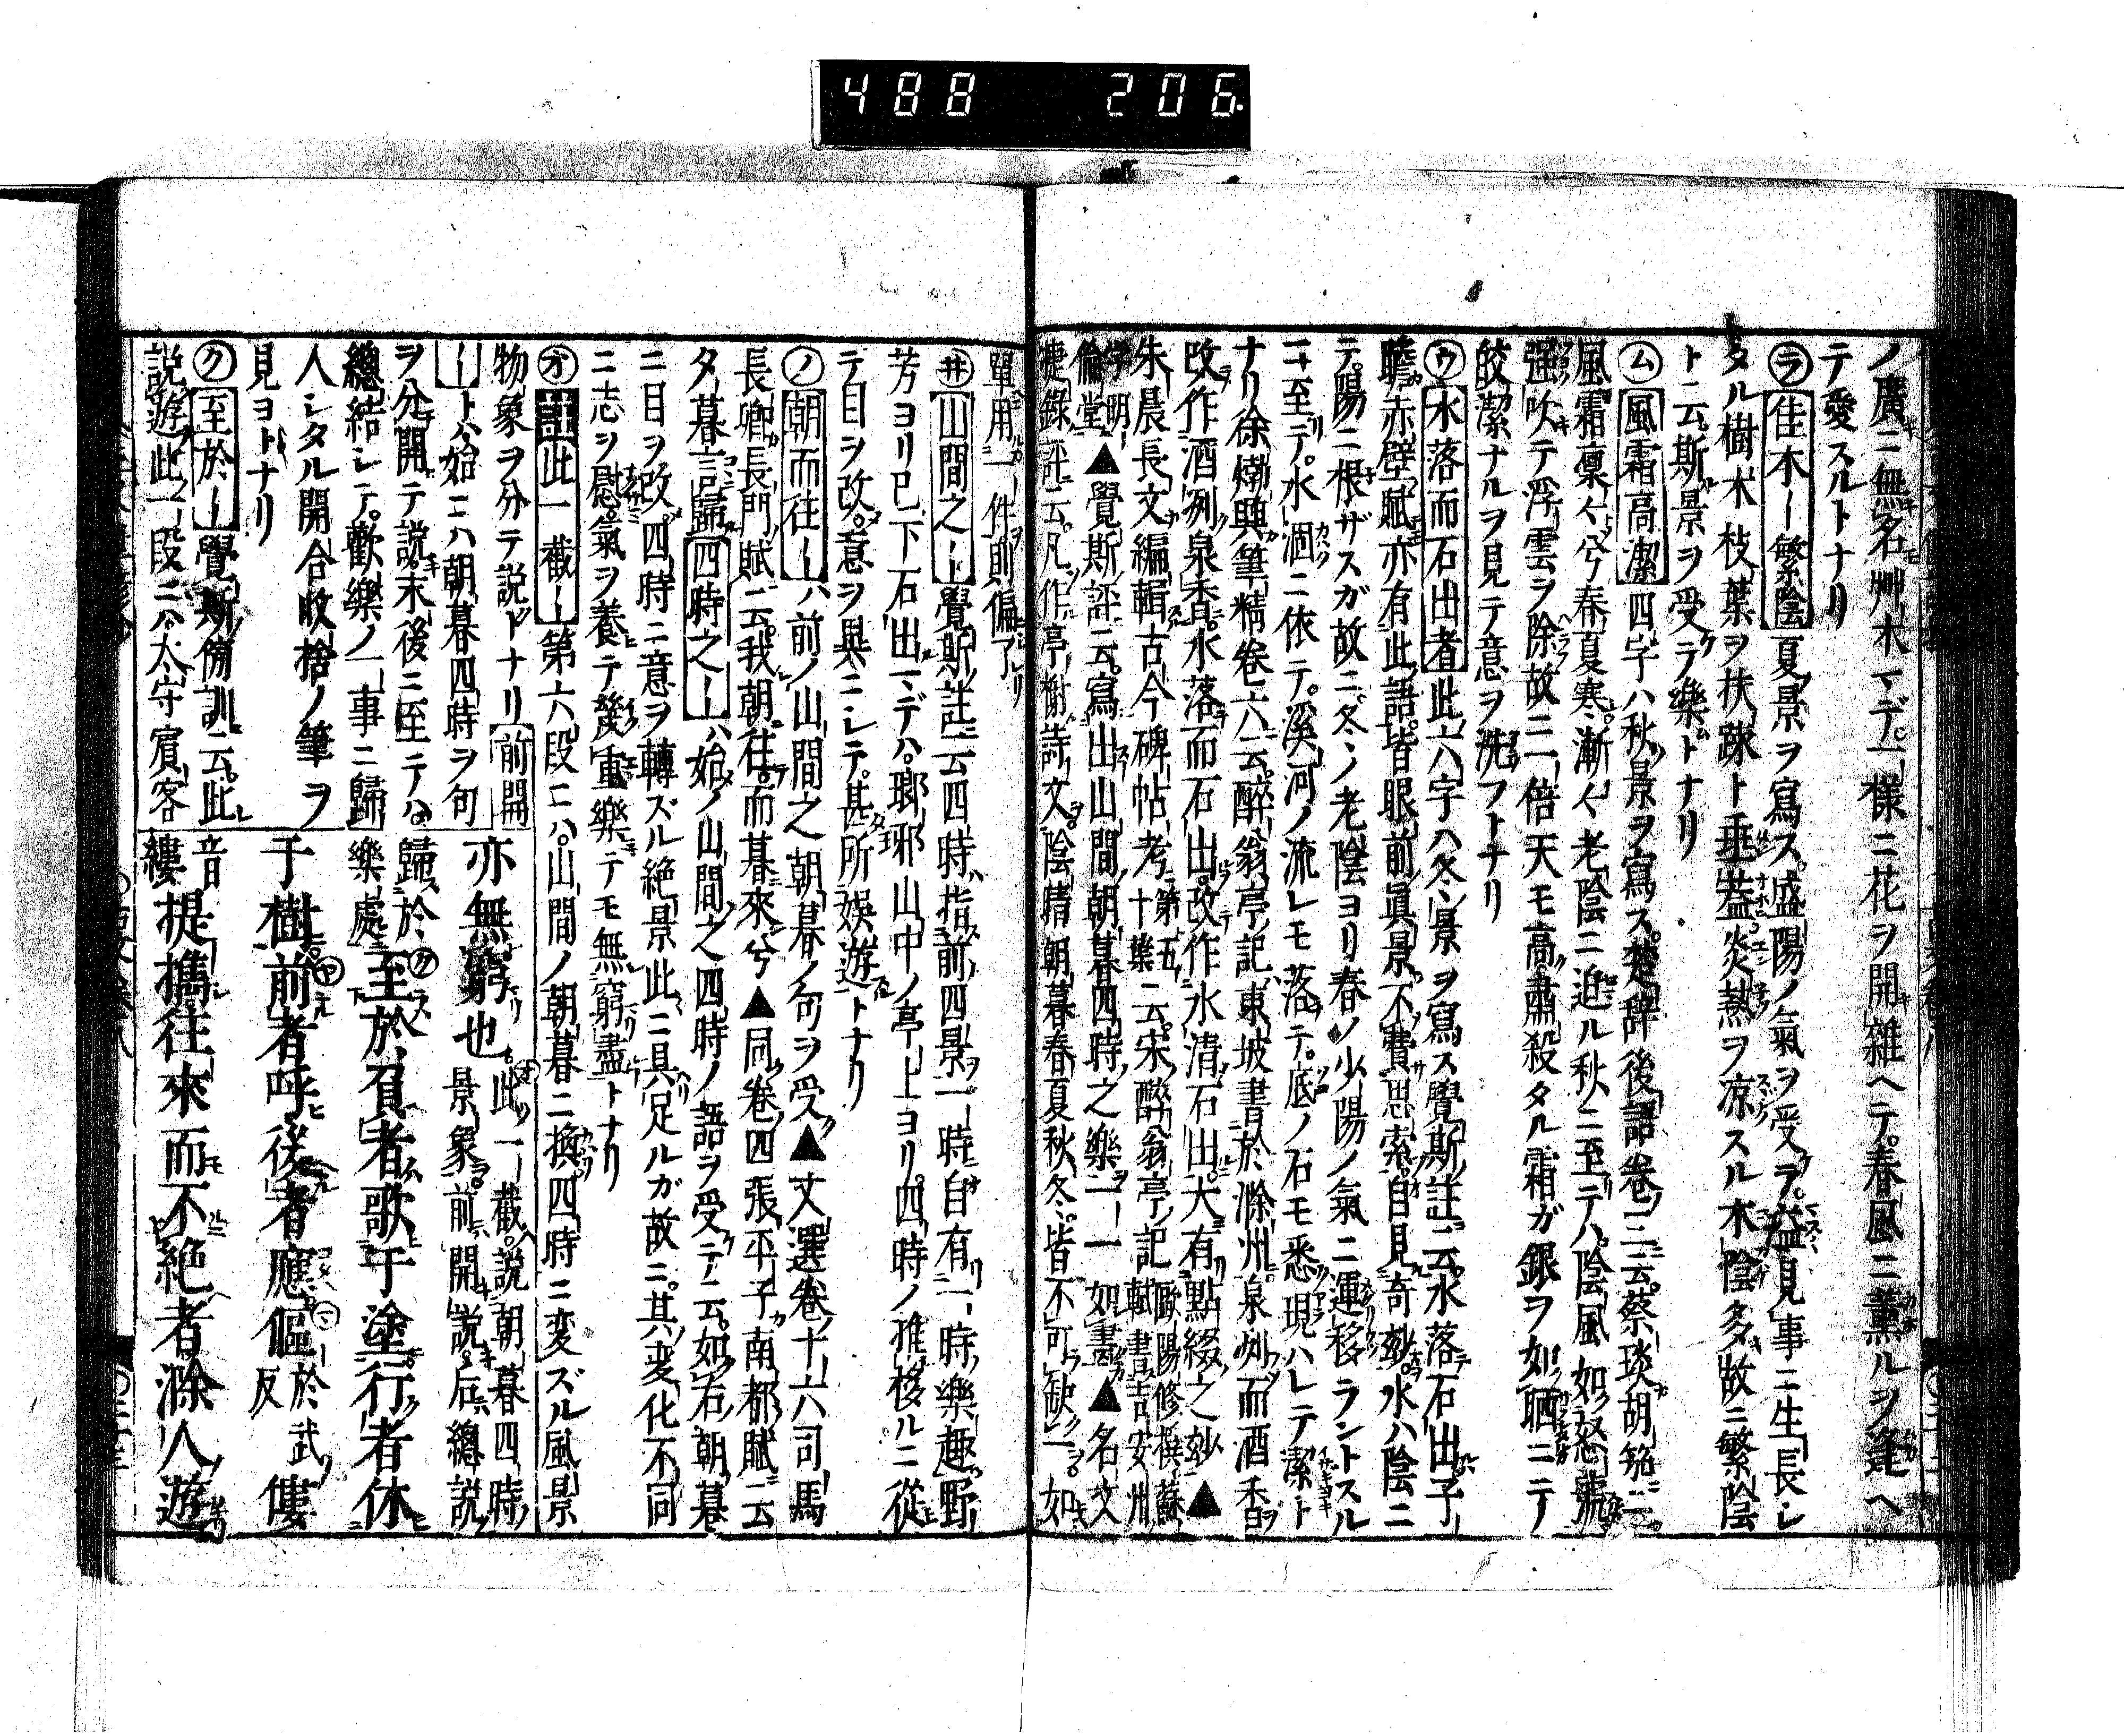 488 206
ノ廣ニ無名艸木マデ一様ニ花ヲ開雜ヘテ春風ニ薫ルヲ逢ヘ
テ愛スルトナリ
㋶佳木ー繁陰夏景ヲ寫ス盛陽ノ氣ヲ受ラ溢見事ニ生長レ
タル樹木枝葉ヲ扶踈ト垂蓋炎熱ヲ凉スル木陰多故ニ繁陰
ト云斯景ヲ受ラ樂トナリ
㋰風霜高潔四字ハ秋景ヲ寫ス楚辭後語卷三云蔡琰胡笳ニ
風霜凜〻兮春夏寒漸〻老陰ニ迫ル秋ニ至テハ陰風如怒號
强吹テ浮雲ヲ除故ニ一倍天モ高肅殺タル霜ガ銀ヲ如晒ニテ
皎潔ナルヲ見テ意ヲ洗フトナリ
㋒水落而石出者此六字ハ冬景ヲ寫ス覺斯註云水落石出子
瞻赤壁賦亦有此語皆眼前眞景不費思索自見奇妙水ハ陰ニ
テ陽ニ根ザスガ故ニ冬ノ老陰ヨリ春ノ少陽ノ氣ニ運移ラントスル
ニ至テ水涸ニ依テ溪河ノ流レモ落テ底ノ石モ悉現ハレテ潔ト
ナリ徐𤊹興筆精卷六云醉翁亭記東坡書於滁州泉冽而酒香
改作酒冽泉香水落而石出改作水清石出大有點綴之妙▲
朱晨長文編輯古今碑帖考第五十葉云宋醉翁亭記歐陽修撰蘇軾書吉安州
学明倫堂▲覺斯評云寫出山間朝暮四時之樂一一如畫▲名文
捷錄評云凡作亭榭詩文陰晴朝暮春夏秋冬皆不可缺一如
單用一件則偏了
㋼山間之ー覺斯註云四時指前四景一時自有一時樂趣野
芳ヨリ已下石出マデハ瑯琊山中ノ亭上ヨリ四時ノ推移ルニ從
テ目ヲ改意ヲ異ニレテ甚所娯遊トナリ
㋨朝而往ーハ前ノ山間之朝暮ノ句ヲ受▲文選卷十六司馬
長卿長門賦云我朝往而暮來兮▲同卷四張平子南都賦云
夕暮言歸四時之ーハ始ノ山間之四時ノ語ヲ受テ云如右朝暮
ニ目ヲ改四時ニ意ヲ轉ズル絶景此ニ具足ルガ故ニ其変化不同
ニ志ヲ慰氣ヲ養テ幾重樂テモ無窮盡トナリ
㋔註此一截ー第六段ニハ山間ノ朝暮ニ換四時ニ変ズル風景
物象ヲ分テ説トナリ前開
ートハ始ニハ朝暮四時ヲ句
ヲ分開テ説末後ニ至テハ
總結レテ歡樂ノ一事ニ歸
人レタル開合收捨ノ筆ヲ
見ヨトナリ
㋗至於ー覺斯傍訓云此
説遊此一段ニハ太守賓客
亦無窮也此一截説朝暮四時景象前開説后總説
歸於樂處至於負者歌于塗行者休
于樹前者呼後者應傴於武反僂
音縷提攜往來而不絶者滁人遊